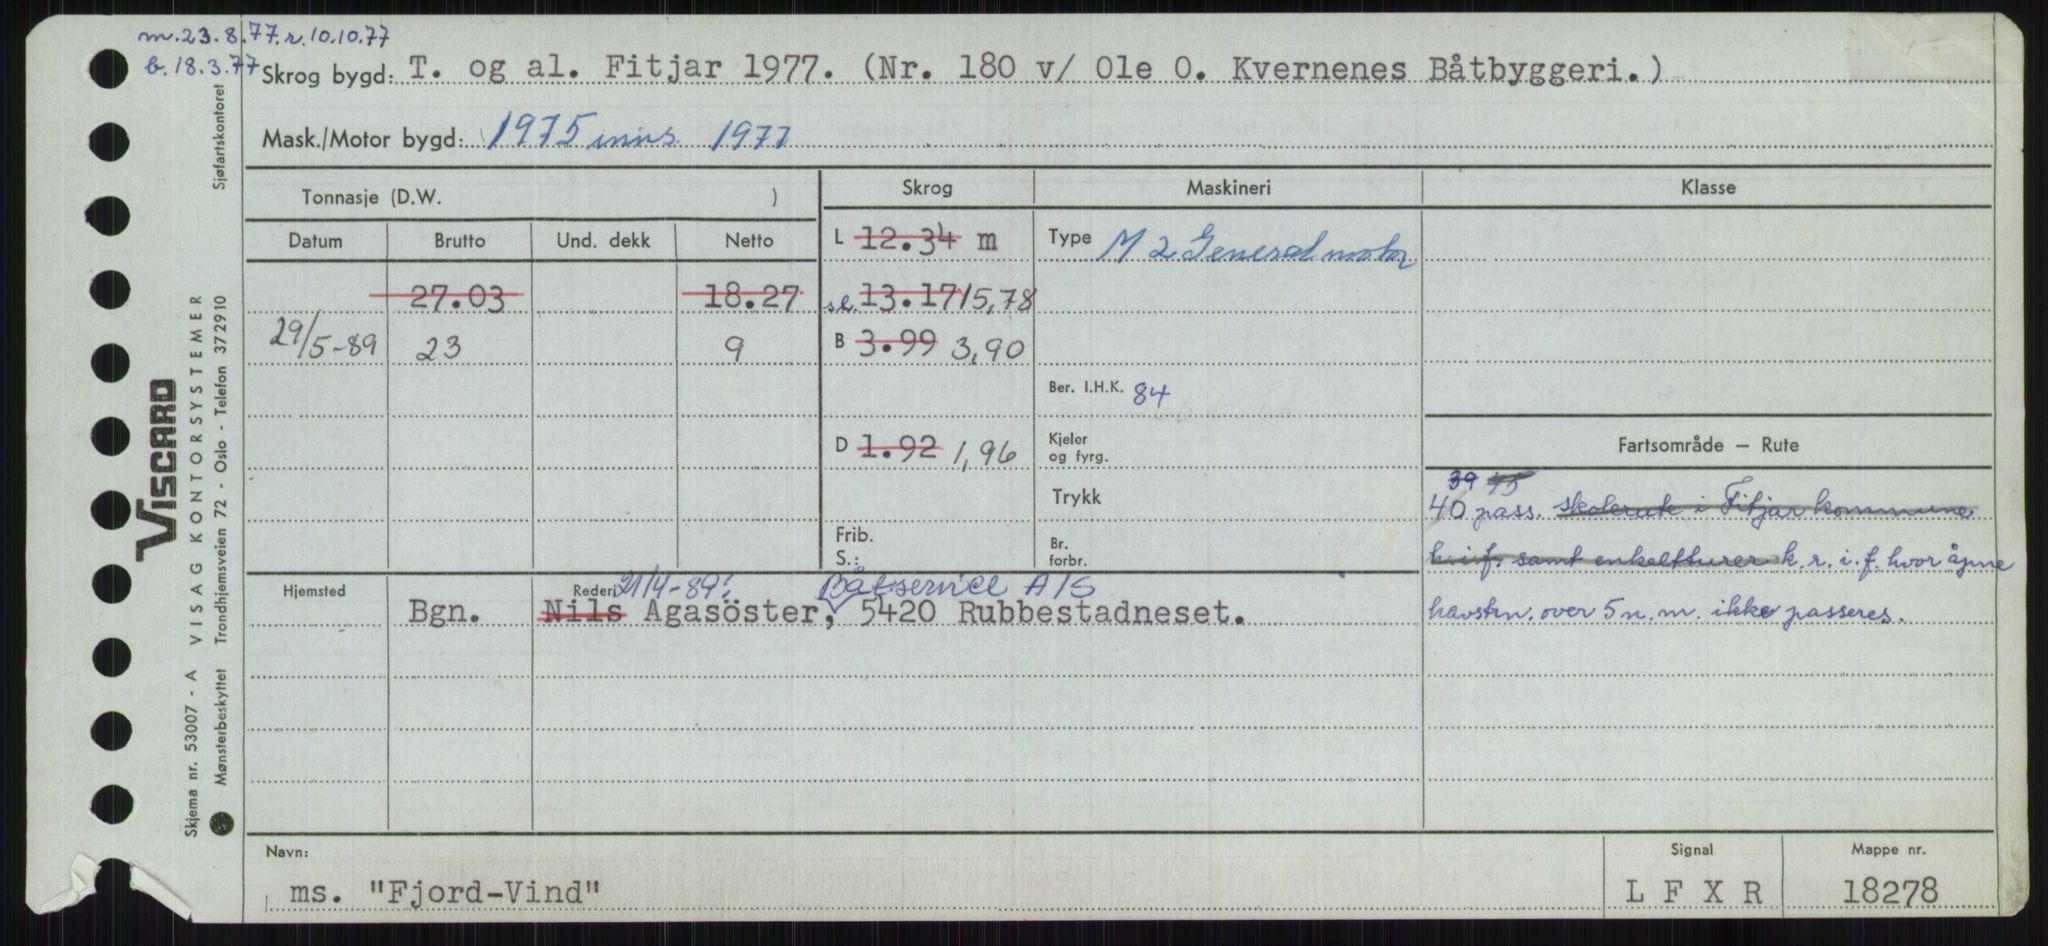 m.23.8.77.r.10.10.77
b.18.3.77
Skrog bygd: T. og al. Fitjar 1977. (Nr. 180 v/ Ole O. Kvernenes Båtbyggeri.)
Mask./Motor bygd: 1975 inns. 1977
Tonnasje (D.W. )
Skrog Maskineri Klasse
Datum Brutto Und. dekk Netto
L 12.34 m Type M 2 General motor
27.03 18.27 sl. 13.17 15,78
29/5-89 23 9 B 3.99 3,90
Ber. I.H.K. 84
D 1.92 1,96 Kjeler
og fyrg.
Fartsområde — Rute
39 45
Trykk 40 pass. skolerute i Fitjar kommune
Frib.
S.: Br.
forbr.
h.i.f. samt enkeltturer k.r.i.f. hvor åpne
havstrn. over 5 n.m. ikke passeres.
Hjemsted Rederi 21/4-89: Båtservice A/S
Bgn. Nils Agasöster, 5420 Rubbestadneset.
Navn: Signal Mappe nr.
ms. "Fjord-Vind" L F X R 18278
VISCARD
Skjema nr. 53007 - A VISAG KONTORSYSTEMER
Mønsterbeskyttet Trondhjemsveien 72 - Oslo - Telefon 372910 Sjøfartskontoret